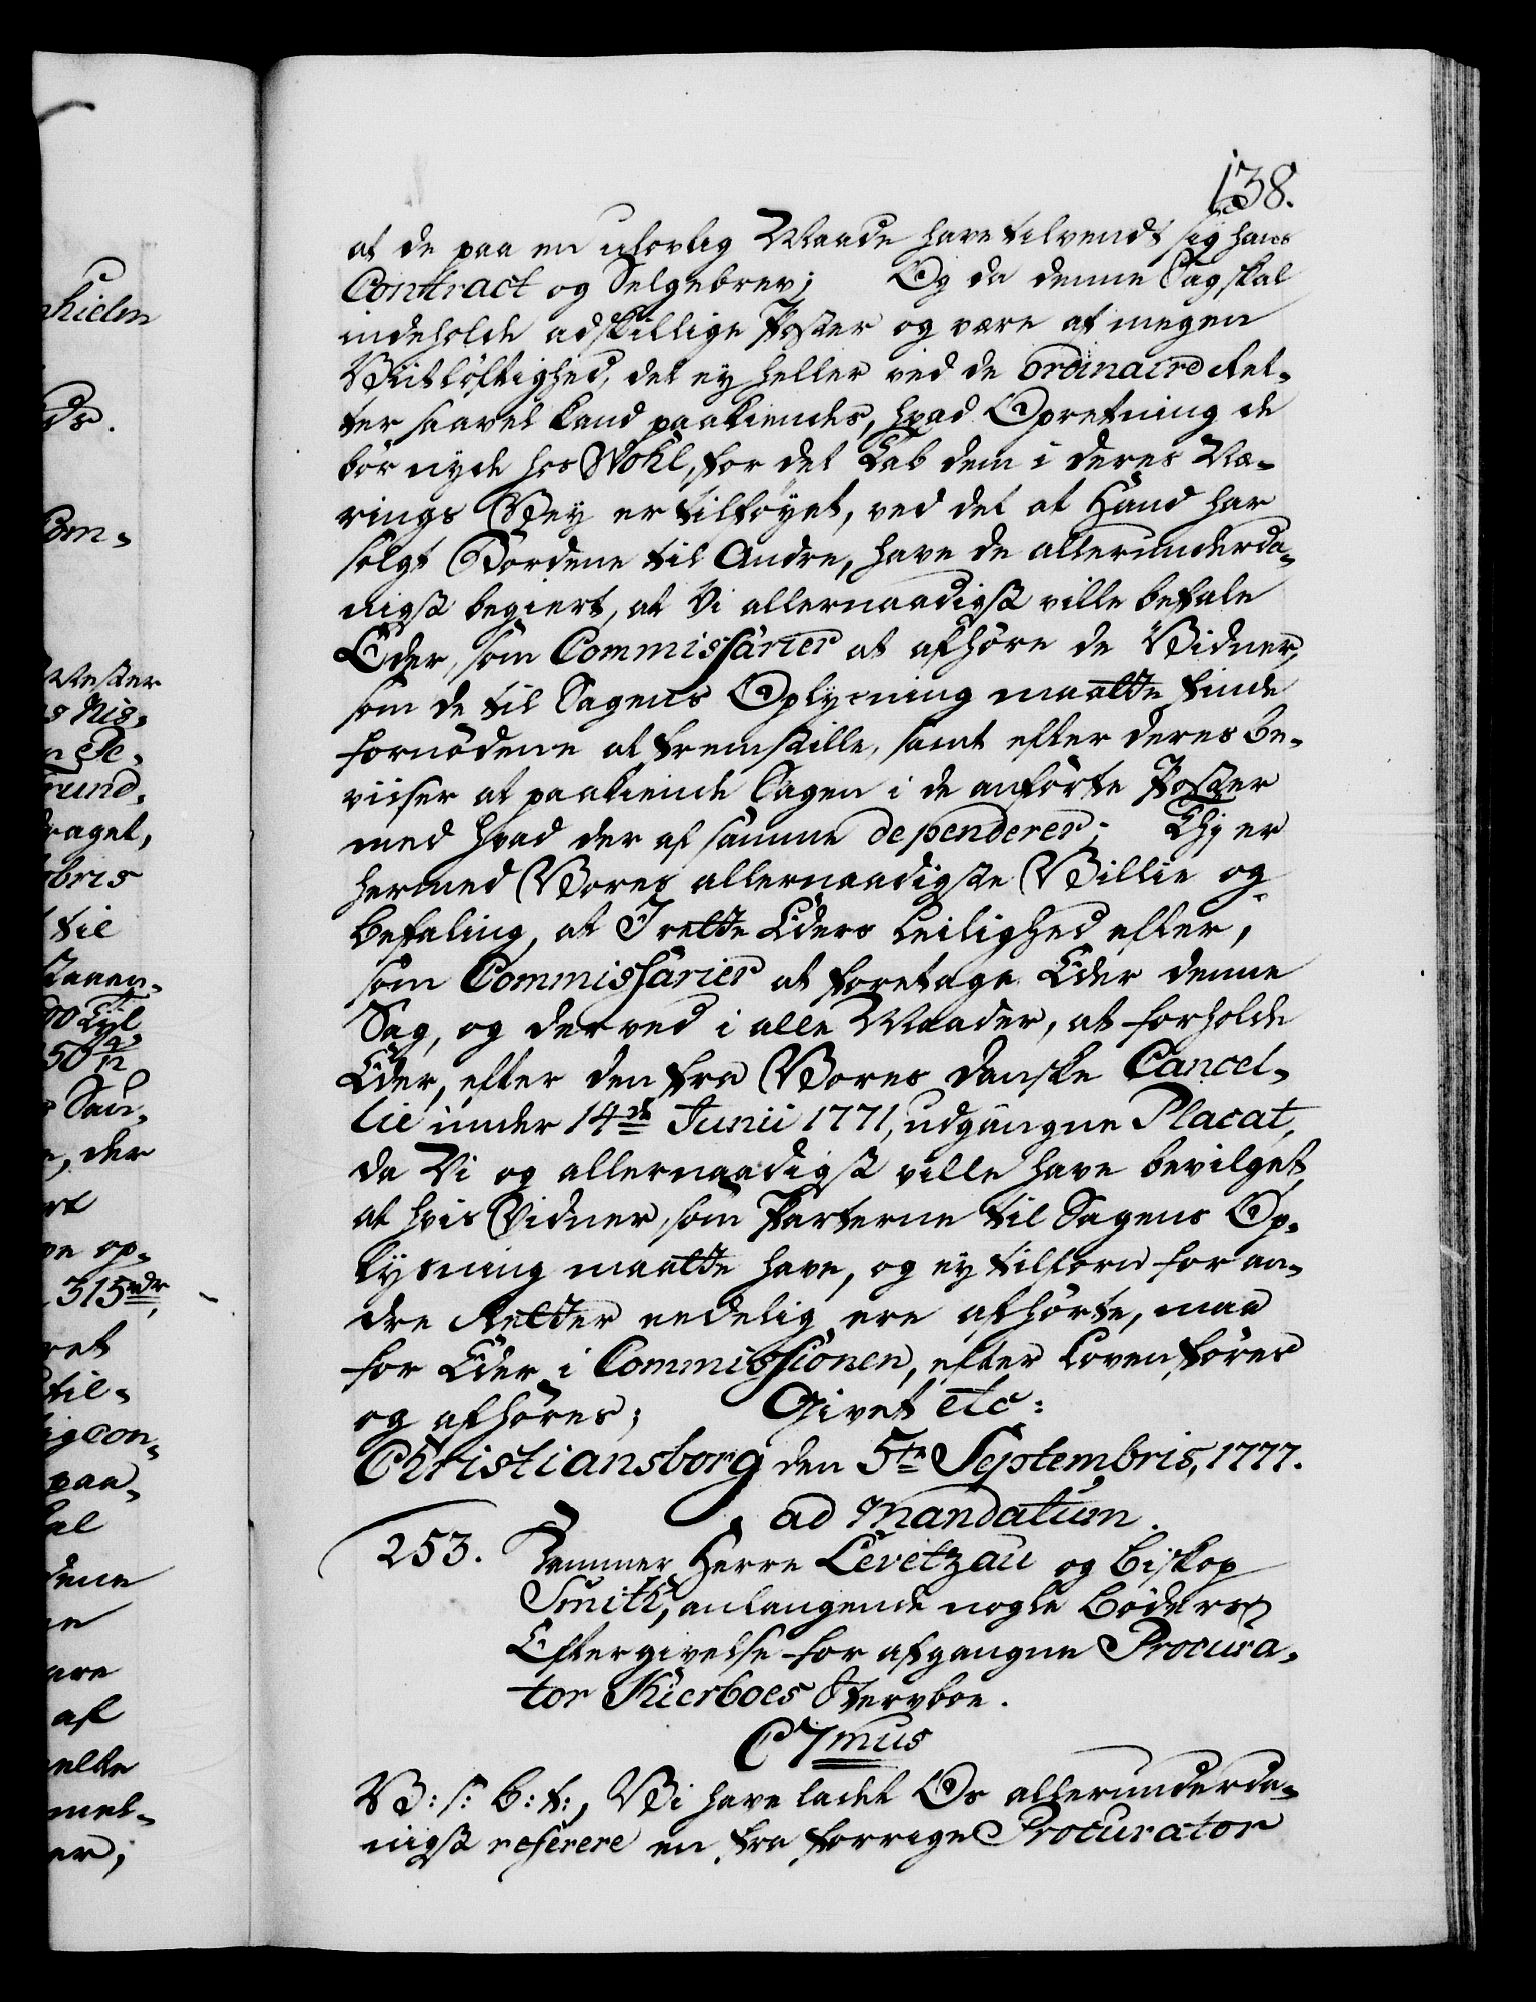 138.
at de paa en ulovlig Maade have tilvendt sig hans
Contract og Selgebrev; Og da denne Sag skal
indeholde adskillige Poster og være af megen
Vitløftighed, det ey heller ved de ordinaire Ret-
ter saavel kand paakiendes, hvad Opretning de
bör nyde hos Wohl, for det Tab dem i deres Næ-
rings Vey er tilföyet, ved det at Hand har
solgt Bordene til Andre, have de allerunderda-
nigst begiert, at Vi allernaadigst ville befale
Eder, som Commissarier at afhöre de Vidner,
som de til Sagens Oplysning maatte finde
fornödene at fremstille, samt efter deres be-
viiser at paakiende Sagen i de anförte Poster
med hvad der af samme dependerer; Thj er
hermed Vores allernaadigste Villie og
befaling, at I rette Eders Leilighed efter,
som Commissarier at foretage Eder denne
Sag, og derved i alle Maader, at forholde
Eder, efter den fra Vores danske Cancel-
lie under 14de Junii 1771, udgangne Placat,
da Vi og allernaadigst ville have bevilget,
at hvis Vidner, som Parterne til Sagens Op-
lysning maatte have, og ey tilforn for an-
dre Retter eedelig ere afhörte, maa
for Eder i Commissionen, efter Loven föres
og afhöres; Givet etc:
Christiansborg den 5te Septembris, 1777.
ad Mandatum.
253. Kammer Herre Levetzau og Biskop
Smith, anlangende nogle Böders
Eftergivelse for afgangne Procura-
tor Kierboes Stervboe.
C7mus
V: s: G: t:, Vi have ladet Os allerunderda-
nigst referere en fra forrige Procurator